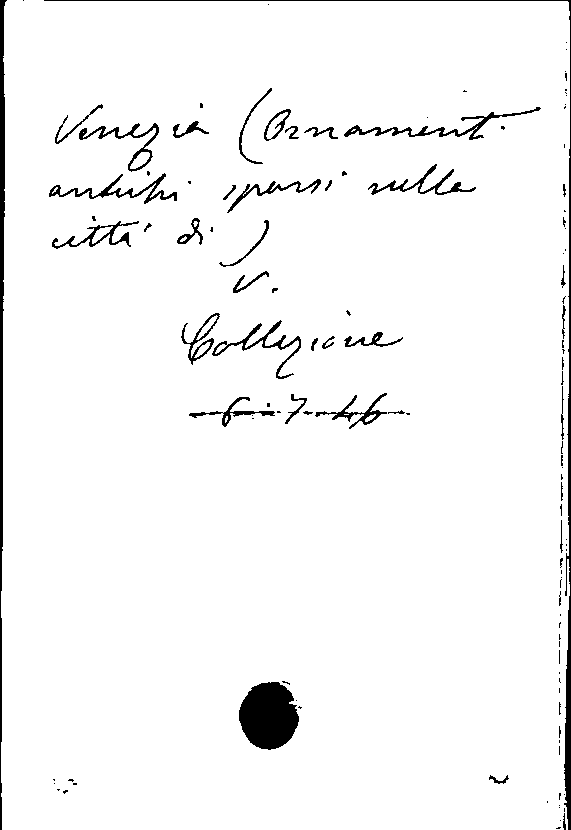 Venezia (Ornamenti
antichi sparsi nella
città di)
V.
Collezione
6-7-46